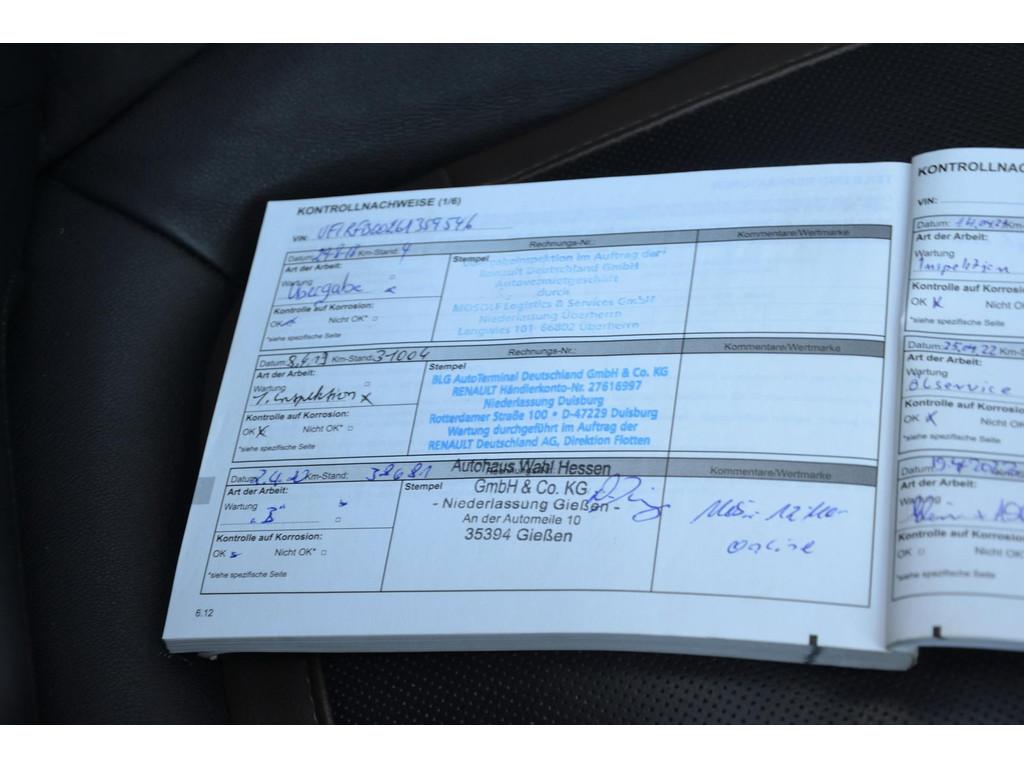 KONTROLLNACHWEISE (1/6)
VIN:
Datum: Km-Stand: 4 Rechnungs-Nr.: Kommentare/Wertmarke
Art der Arbeit:
Wartung
Übergabe
Kontrolle auf Korrosion:
OK Nicht OK*
*siehe spezifische Seite
Stempel
im Auftrag der
Renault Deutschland GmbH
Autovermietgeschäft
durch
MOSOLF Logistics & Services GmbH
Niederlassung Überherrn
Langwies 101 · 66802 Überherrn
Datum: 8.4.19 Km-Stand: 31004 Rechnungs-Nr.: Kommentare/Wertmarke
Art der Arbeit:
Wartung
1. Inspektion x
Kontrolle auf Korrosion:
OK x Nicht OK*
*siehe spezifische Seite
Stempel
BLG AutoTerminal Deutschland GmbH & Co. KG
RENAULT Händlerkonto-Nr. 27616997
Niederlassung Duisburg
Rotterdamer Straße 100 * D-47229 Duisburg
Wartung durchgeführt im Auftrag der
RENAULT Deutschland AG, Direktion Flotten
Datum: Km-Stand: 38681 Kommentare/Wertmarke
Art der Arbeit:
Wartung
"B"
Kontrolle auf Korrosion:
OK Nicht OK*
*siehe spezifische Seite
Stempel
Autohaus Wahl Hessen
GmbH & Co. KG
- Niederlassung Gießen -
An der Automeile 10
35394 Gießen
online
6.12
KONTROLLNAC
VIN:
Datum: Km-S
Art der Arbeit:
Wartung
Inspektion
Kontrolle auf Korrosion
OK x Nicht OK
*siehe spezifische Seite
Datum: 25.04.22 Km-S
Art der Arbeit:
Wartung
Ölservice
Kontrolle auf Korrosion
OK x Nicht OK
*siehe spezifische Seite
Datum:
Art der Arbeit:
Kontrolle auf Korros
OK Nicht OK
*siehe spezifische Seite